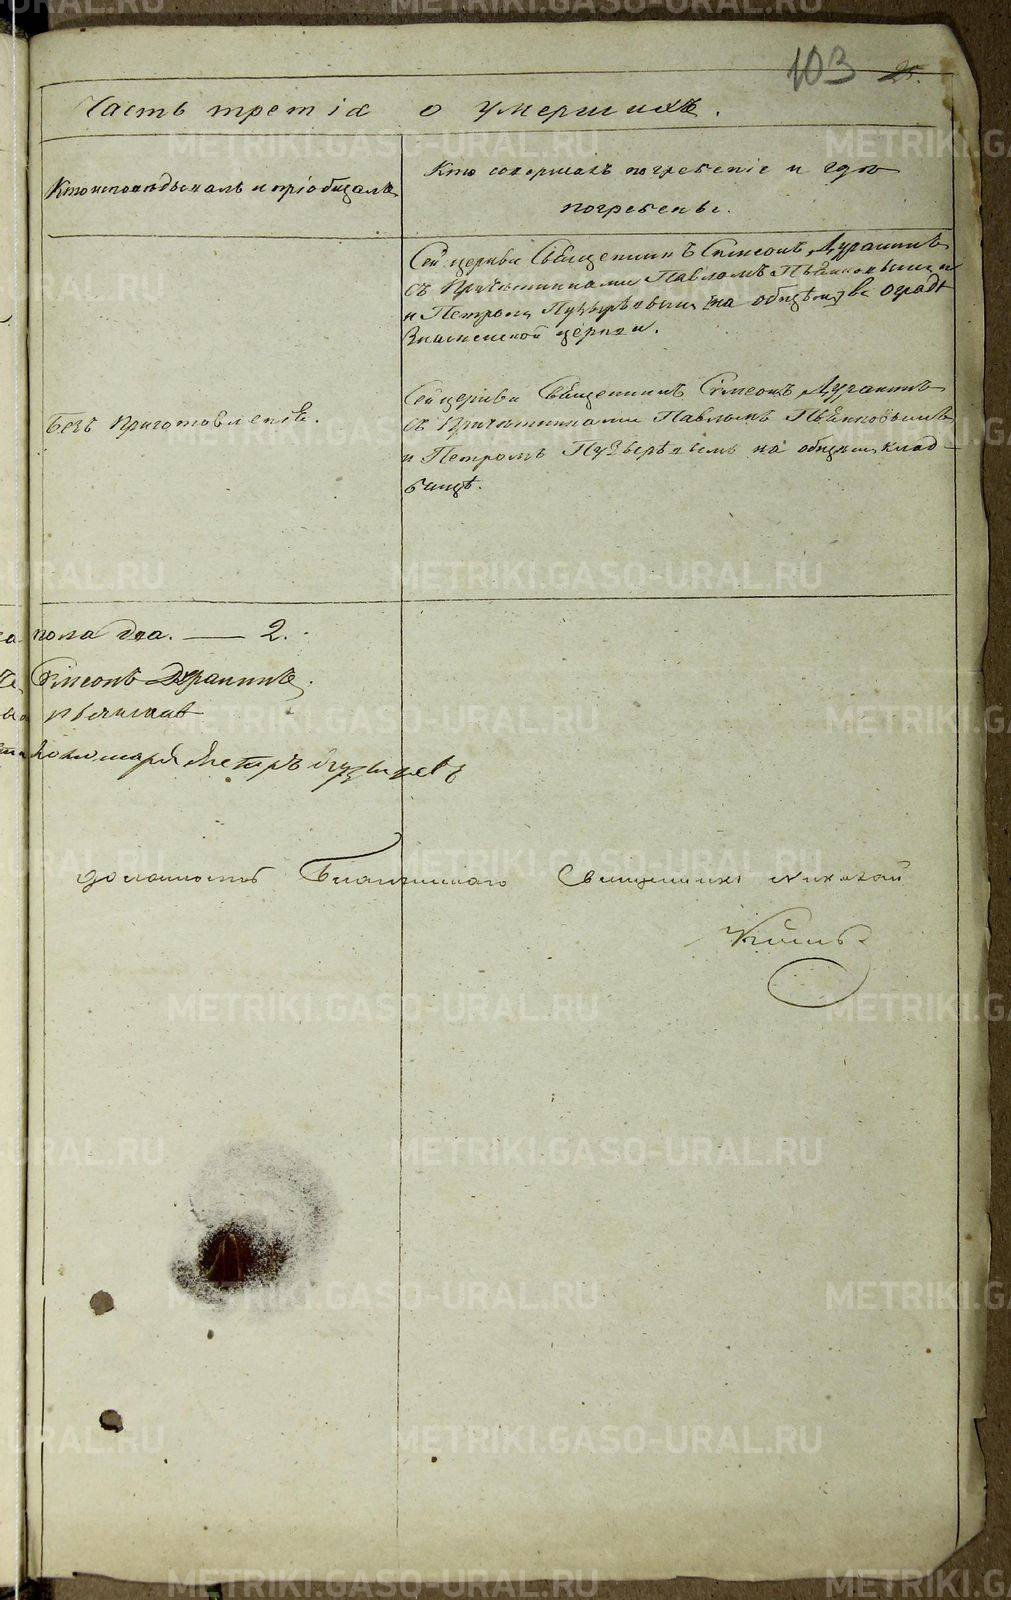 103 25.
Часть третія о умершихъ.
Кто исповѣдывалъ и пріобщалъ
Кто совершалъ погребеніе и гдѣ
погребены.
Сей церкви Священникъ Симеонъ Дурашинъ
съ Причетниками Павломъ Пьянковымъ и
и Петромъ Пузыревымъ на общемъ въ оградѣ
Знаменской церкви.
Безъ приготовленія.
Сей церкви Священникъ Симеонъ Дурашинъ
съ Причетниками Павломъ Пьянковымъ
и Петромъ Пузыревымъ на общемъ клад-
бищѣ.
пола два. — 2.
Симеонъ Дурашинъ.
Пономарь Петръ Пузыревъ
должность Благочиннаго Священникъ Николай
METRIKI.GASO-URAL.RU